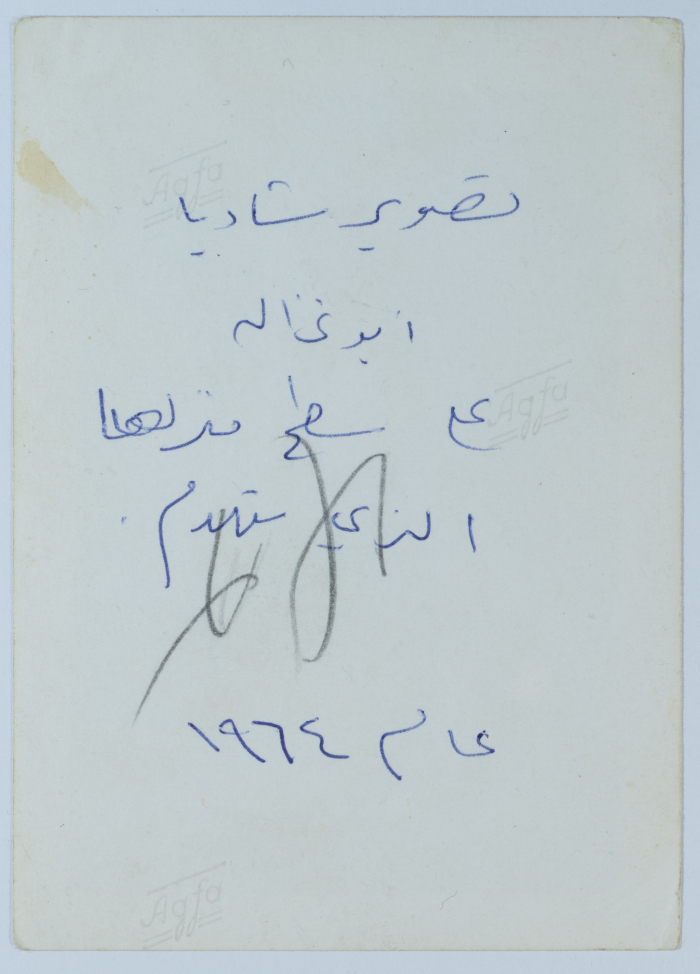 تصوير شاديا
ابو غزاله
على سطح منزلها
الذي تهدم
عام ١٩٦٤
Agfa
Agfa
Agfa